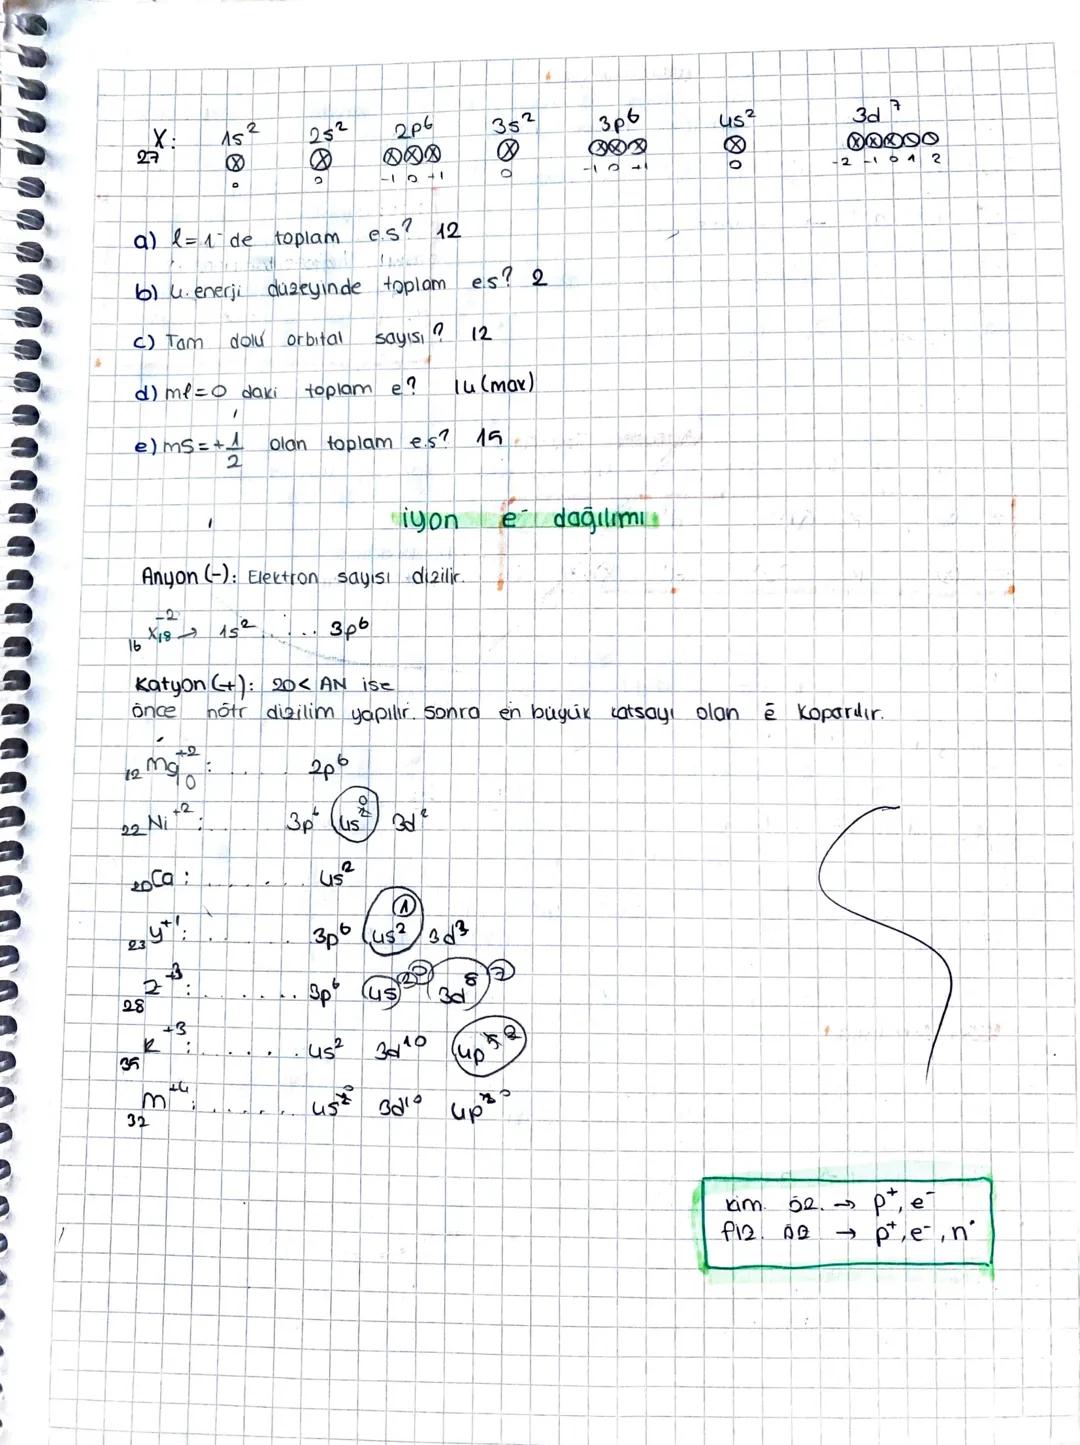 27X: 1s² 2s² 2p⁶ 3s² 3p⁶ 4s² 3d⁷
0 0 -1 0 +1 0 -1 0 +1 0 -2 -1 0 1 2
a) l=1 de toplam e.s? 12
b) 4. enerji düzeyinde toplam es? 2
c) Tam dolu orbital sayısı? 12
d) ml=0 daki toplam e? 14 (max)
e) ms=+1/2 olan toplam e.s? 15
iyon e⁻ dağılımı
Anyon (-): Elektron sayısı dizilir.
16X18⁻² → 1s² ..... 3p⁶
Katyon (+): 20< AN ise
önce nötr dizilim yapılır. sonra en büyük katsayı olan ē kopardır.
12Mg⁺²10: ... 2p⁶
22Ni⁺²: ... 3p⁶ 4s² ⁰ 3d²
20Ca: ...... 4s²
23y⁺¹: ... 3p⁶ 4s² ① 3d³
28Z⁺³: ...... 3p⁶ 4s² ⁰ 3d⁸ ⑦
35k⁺³: ...... 4s² 3d¹⁰ 4p⁵ ²
32m⁺⁴: ...... 4s² ⁰ 3d¹⁰ 4p² ⁰
kim. öz. → p⁺, e⁻
fiz. öz → p⁺, e⁻, n°